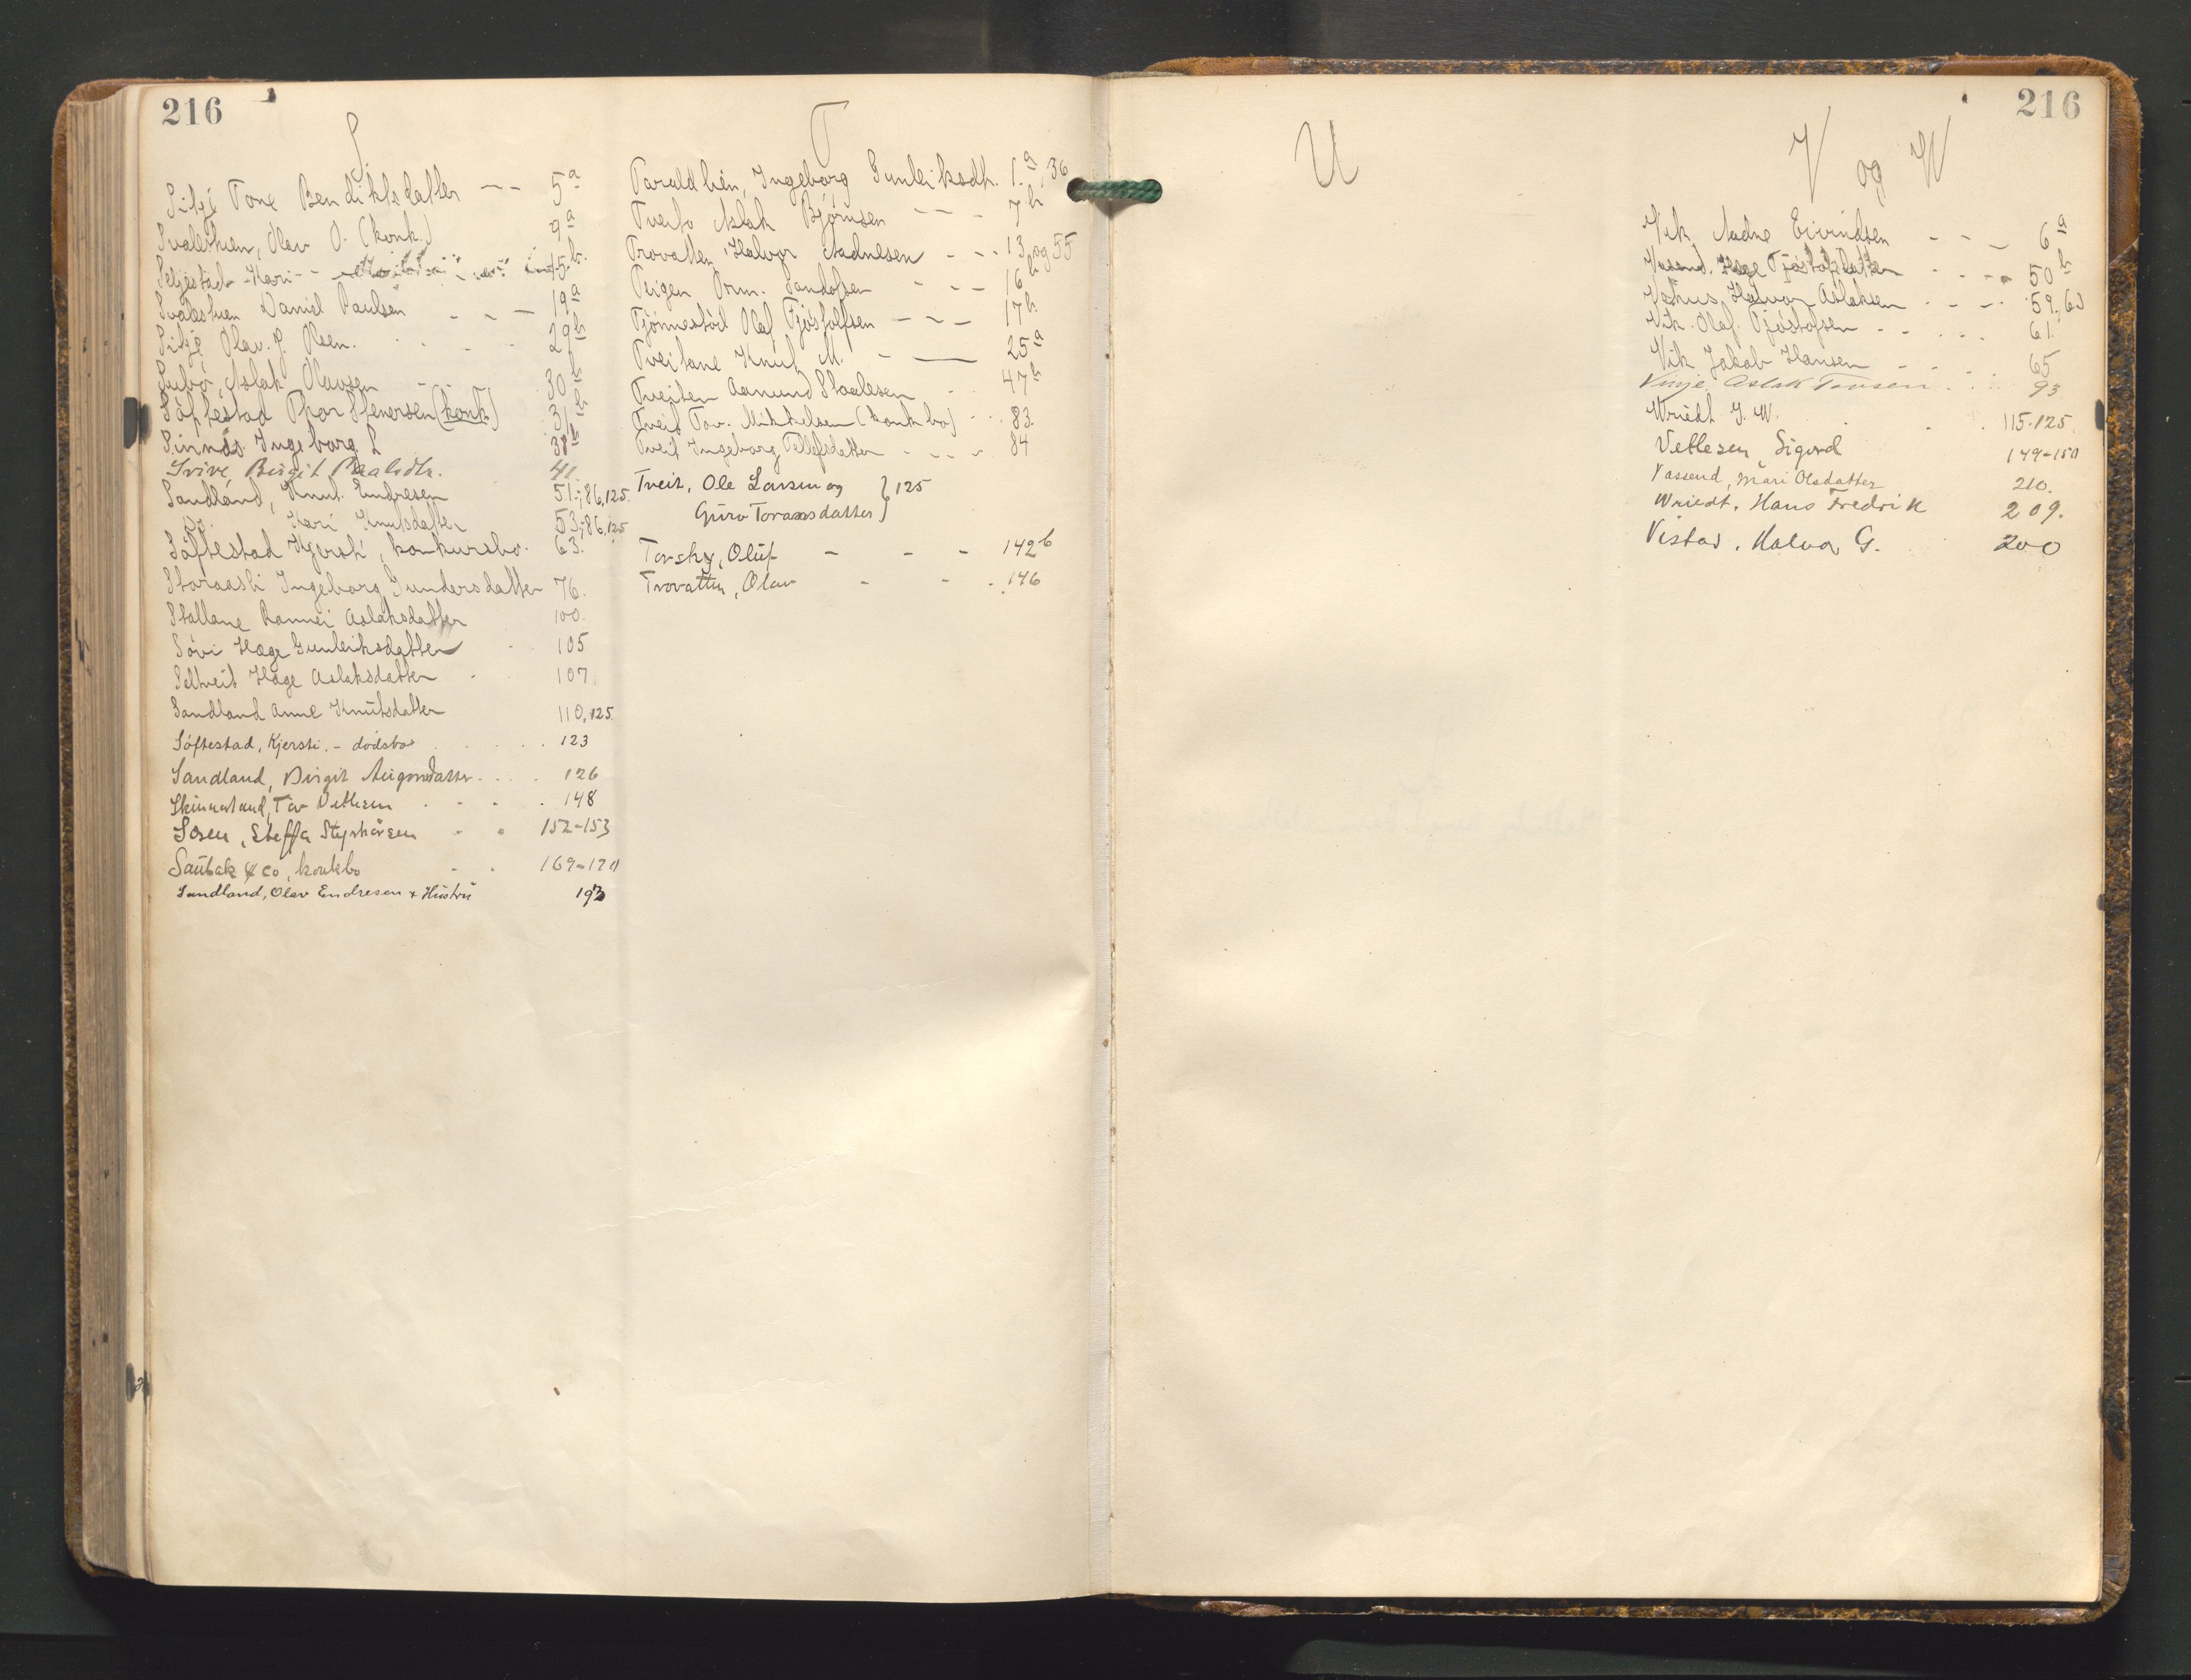 216
S
Siljé Tone Bendiktsdatter -- 5a
Svalestuen, Olav O. (konk.) 9a
Seljestad Kari 15b.
Svalestuen Daniel Paulsen - - - 19a
Siljé Olav. J. Olsen. 29b
Aslak Olavsen - - 30b
Söftestad Thor Stenersen (konk.) 31b
Sinnäs Ingeborg L 38b
Birgit 41.
Sandland, Knut Endresen 51.; 86, 125.
Do. Kari Knutsdatter 53.; 86, 125
Söftestad Kjersti, konkursbo. 63.
Staraasli Ingeborg Gundersdatter 76.
Stallane Rannei Aslaksdatter 100.
Sövi Hæge Gunleiksdatter 105
Seltveit Hæge Aslaksdatter 107.
Sandland Anne Knutsdatter 110, 125.
Söftestad, Kjersti. - dödsbo 123
Sandland, Birgit 126
Tov Vetlesen 148
Steffa 152-153
& Co, konkbo 169-170
Sandland, Olav Endresen + Hüstrü 193
T
Taraldlien, Ingeborg Gunleiksdtr. 1.a, 36
Aslak Björnsen - - - 7b
Trovatten Halvor Aadnesen - - - 13b og 55
Orm. Sandofsen - - - 16b
Tjönnestöil Olaf Tjöstolfsen - - - 17b
Tveitane Knut M. - — 25a
Tveiten Aamund Staalesen 47b
Tveit Tov. Mikkelsen (konk bo) - - 83.
Tveit Ingeborg - - - 84
Tveit, Ole Larsen og } 125
Güro }
Torsky, Olüf - - - 142b
Trovatten, Olav - - . 146
U
216
V og W
Vik Aadne Eivindsen - - - 6a
Hæge 50b
Halvor Aslaksen - - - 59., 63
Vik. Olaf. Tjöstofsen - - . . . 61.
Vik Jakob Hansen - - - 65
Vinje, Aslak 93
Wriedt J. W. 115.125.
Vetlesen, Sigurd 149-150
Vassend, Mari Olsdatter 210.
Wriedt, Hans Fredrik 209.
Vistad, Halvor G. 200